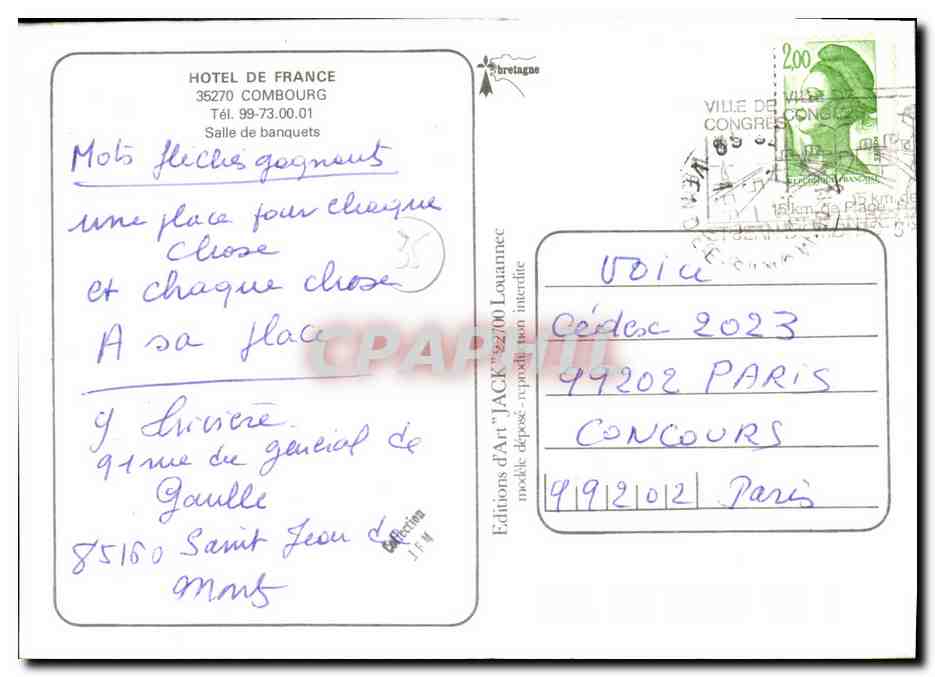 HOTEL DE FRANCE
35270 COMBOURG
Tél. 99-73.00.01
Salle de banquets
Mots fléchés gagnants
une place pour chaque
chose
et chaque chose
A sa place
35
91 rue du général de
Gaulle
85160 Saint Jean de
Monts
Collection
J F M
bretagne
Editions d'Art "JACK" 22700 Louannec
modèle déposé - reproduction interdite
CPAPHIL
2,00
VILLE DE
CONGRES
VILLE DE
CONGRES
15 km de Plage
VOICI
Cédex 2023
99202 PARIS
CONCOURS
99202 Paris